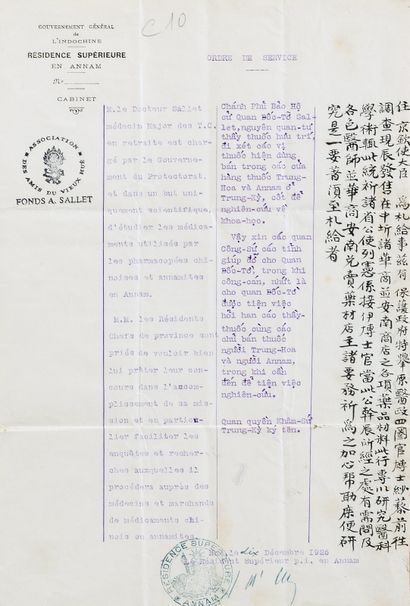 C10
GOUVERNEMENT GÉNÉRAL
de
L'INDOCHINE
RÉSIDENCE SUPÉRIEURE
EN ANNAM
N°
CABINET
ASSOCIATION DES AMIS DU VIEUX HUÉ
FONDS A. SALLET
ORDRE DE SERVICE
M.le Docteur Sallet
médecin Major des T.C.
en retraite est char-
gé par le Gouverne-
ment du Protectorat,
et dans un but uni-
quement scientifique,
d'étudier les médica-
ments utilisés par
les pharmacopées chi-
noises et annamites
en Annam.
M.M. les Résidents
Chefs de province sont
priés de vouloir bien
lui prêter leur con-
cours dans l'accom-
plissement de sa mis-
sion et en particu-
lier faciliter les
enquêtes et recher-
ches auxquelles il
procédera auprès des
médecins et marchands
de médicaments chi-
nois ou annamites.
Chánh Phủ Bảo Hộ
cử Quan Đốc-Tờ Sal-
let, nguyên quan-tư
thầy thuốc hưu trí,
đi xét các vị
thuốc hiện dùng
bán trong các cửa
hàng thuốc Trung-
Hoa và Annam ở
Trung-Kỳ, cốt để
nghiên-cứu về
khoa-học.
Vậy xin các quan
Công-Sứ các tỉnh
giúp đỡ cho Quan
Đốc-Tờ, trong khi
công-cán, nhất là
cho quan Đốc-Tờ
được tiện việc
hỏi han các thầy-
thuốc cùng các
chủ bán thuốc
người Trung-Hoa
và người Annam,
trong khi cần
đến để tiện việc
nghiên-cứu.
Quan quyền Khâm-Sứ
Trung-Kỳ ký tên.
Huế, le dix Décembre 1926
Le Résident Supérieur p.i. en Annam
RÉSIDENCE SUPÉRIEURE
ANNAM
住 京欽使大臣 爲札給事茲有 保護政府特舉原醫政四圈官博士紗蔡前往
調查現辰發售在中圻諸華商並安南商店之各項藥品物料此行專以研究醫科
學術輒此統祈諸省公使列憲係接伊博士官當此公幹辰所經之處有需問及
各色醫師並華商安南兑賣藥材店主諸要務祈爲之加心帮助康便研
究是一要着須至札給者